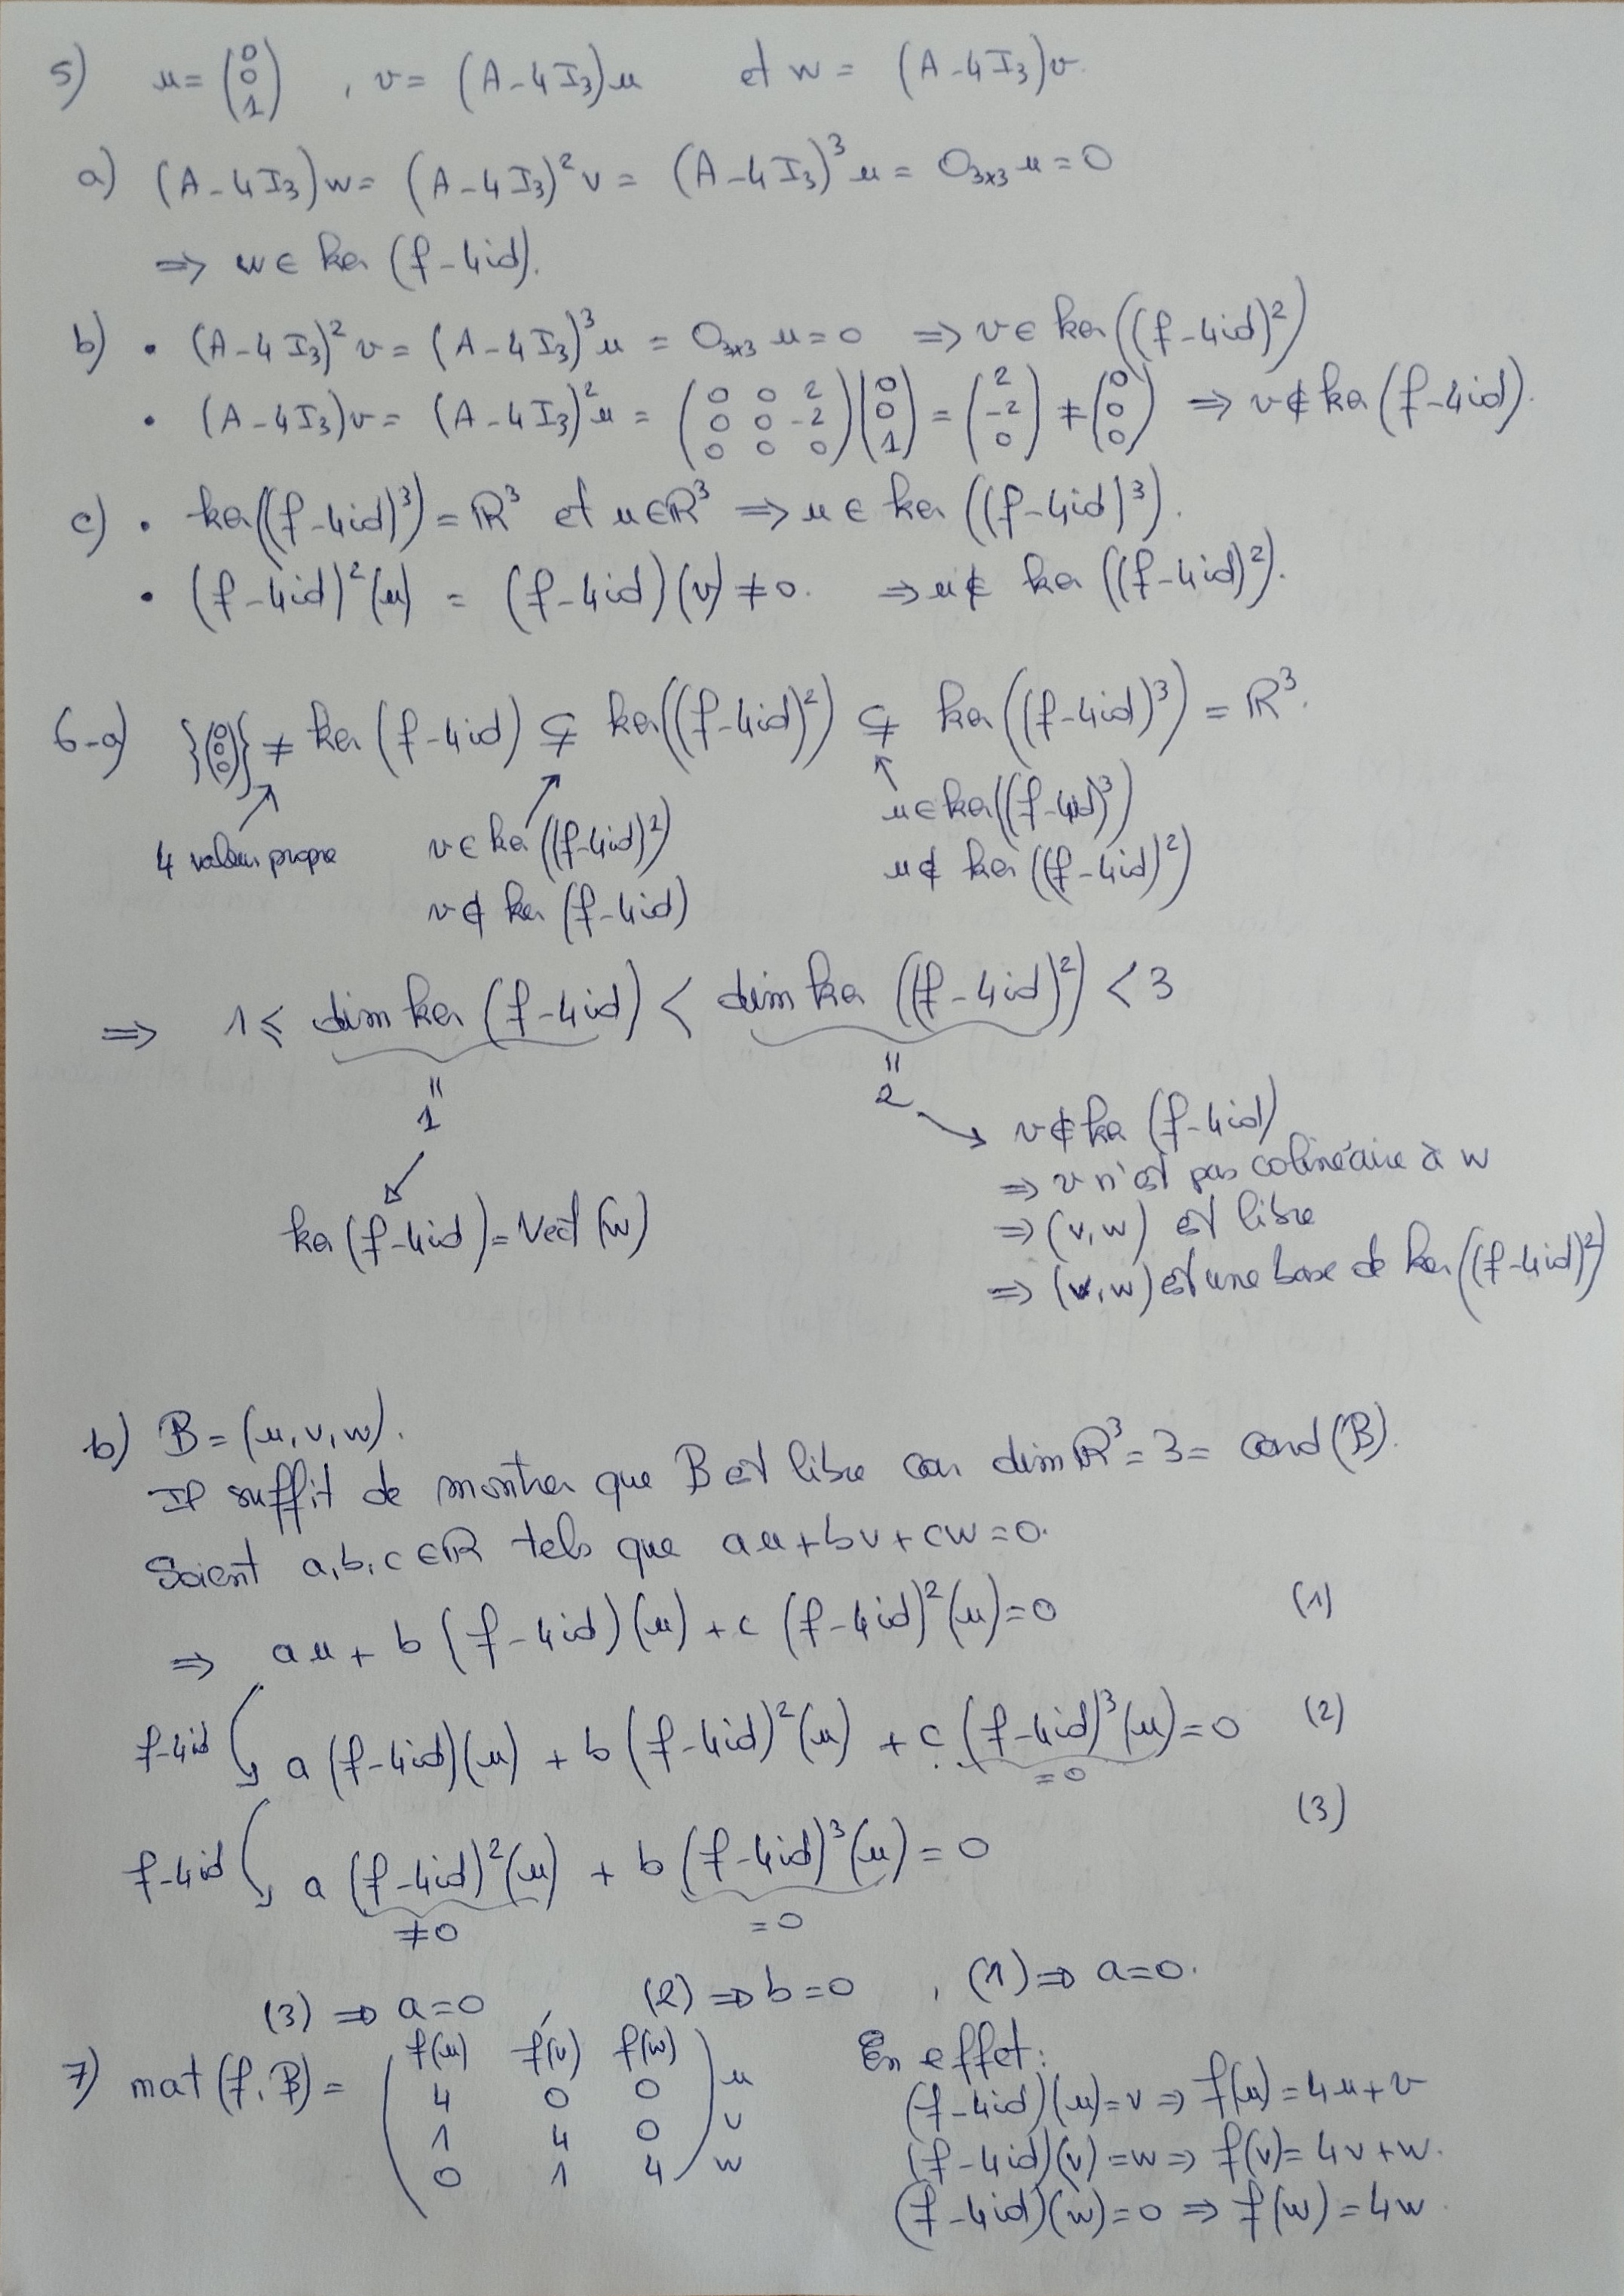 5) u = (0 0 1), v = (A - 4I₃)u et w = (A - 4I₃)v.
a) (A - 4I₃)w = (A - 4I₃)²v = (A - 4I₃)³u = O₃ₓ₃u = 0
⇒ w ∈ ker(f - 4id).
b) • (A - 4I₃)²v = (A - 4I₃)³u = O₃ₓ₃u = 0 ⇒ v ∈ ker((f - 4id)²)
• (A - 4I₃)v = (A - 4I₃)²u = (0 0 2 / 0 0 -2 / 0 0 0)(0 0 1) = (2 -2 0) ≠ (0 0 0) ⇒ v ∉ ker(f - 4id).
c) • ker((f - 4id)³) = ℝ³ et u ∈ ℝ³ ⇒ u ∈ ker((f - 4id)³).
• (f - 4id)²(u) = (f - 4id)(v) ≠ 0. ⇒ u ∉ ker((f - 4id)²).
6-a) {(0 0 0)} ≠ ker(f - 4id) ⊊ ker((f - 4id)²) ⊊ ker((f - 4id)³) = ℝ³.
4 valeur propre
v ∈ ker((f - 4id)²)
v ∉ ker(f - 4id)
u ∈ ker((f - 4id)³)
u ∉ ker((f - 4id)²)
⇒ 1 ≤ dim ker(f - 4id) < dim ker((f - 4id)²) < 3
= 1
= 2
ker(f - 4id) = Vect(w)
v ∉ ker(f - 4id)
⇒ v n'est pas colinéaire à w
⇒ (v, w) est libre
⇒ (v, w) est une base de ker((f - 4id)²)
b) B = (u, v, w).
Il suffit de montrer que B est libre car dim ℝ³ = 3 = card(B).
Soient a, b, c ∈ ℝ tels que au + bv + cw = 0.
⇒ au + b(f - 4id)(u) + c(f - 4id)²(u) = 0 (1)
f - 4id ↘ a(f - 4id)(u) + b(f - 4id)²(u) + c(f - 4id)³(u) = 0 (2)
= 0
f - 4id ↘ a(f - 4id)²(u) + b(f - 4id)³(u) = 0 (3)
≠ 0 = 0
(3) ⇒ a = 0, (2) ⇒ b = 0, (1) ⇒ a = 0.
7) mat(f, B) =
f(u) f(v) f(w)
4 0 0 u
1 4 0 v
0 1 4 w
En effet:
(f - 4id)(u) = v ⇒ f(u) = 4u + v
(f - 4id)(v) = w ⇒ f(v) = 4v + w.
(f - 4id)(w) = 0 ⇒ f(w) = 4w.